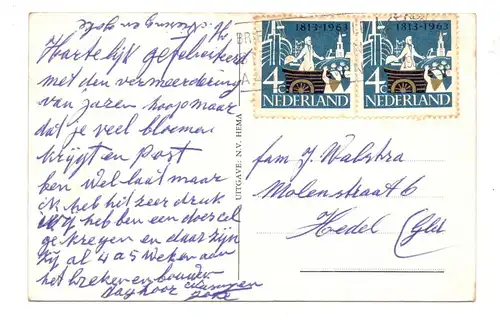 Hartelijk gefeliciteerd
met den vermeerdering
van jaren hoop maar
dat je veel bloemen
krijgt en Post
ben wel laat maar
ik heb het zeer druk
heb ben een
gekregen en daar zijn
zij al 4 a 5 weken aan
het breken en bouwen
UITGAVE: N.V. HEMA
1813-1963
4
C
NEDERLAND
1813-1963
4
C
NEDERLAND
fam J. Walstra
Molenstraat 6
Hedel (Gld)